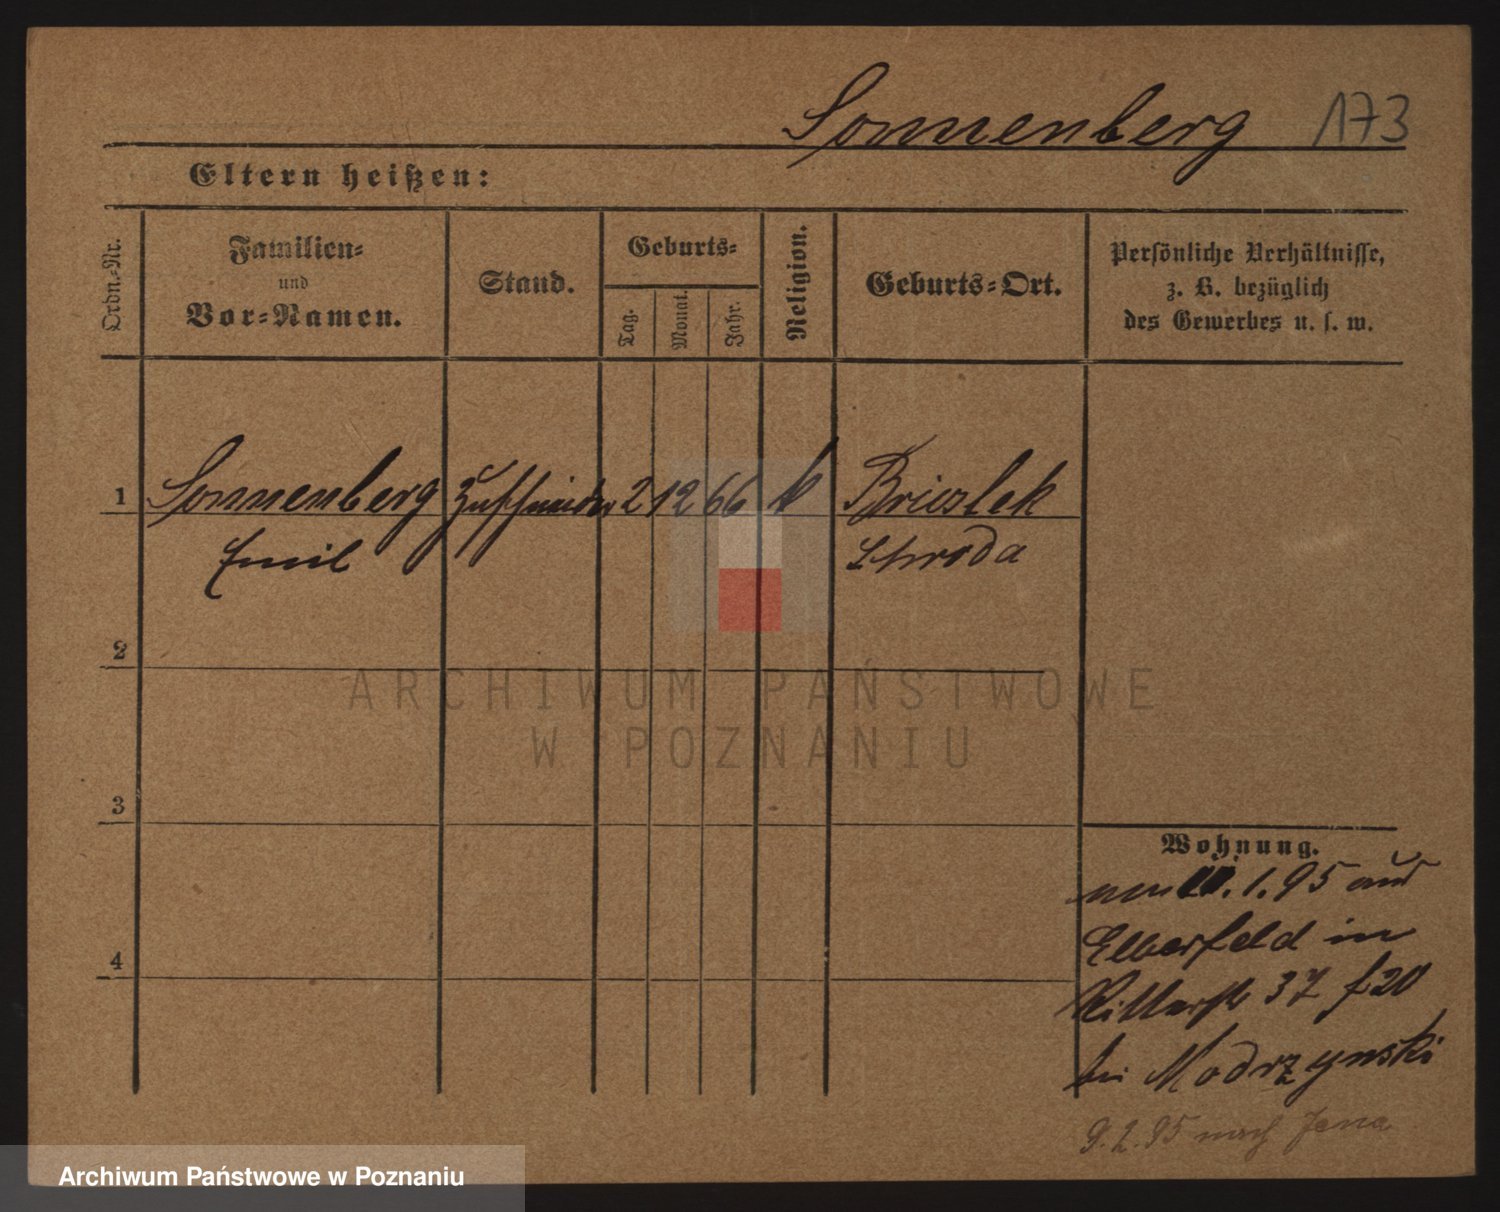 Sonnenberg 173
Eltern heißen:
Ordn.-Nr.
Familien-
und
Vor-Namen.
Stand.
Geburts-
Tag.
Monat.
Jahr.
Religion.
Geburts-Ort.
Persönliche Verhältnisse,
z. B. bezüglich
des Gewerbes u. s. w.
1 Sonnenberg Zuschneider 2 12 66 k
Emil Schroda
2
3
4
Wohnung.
.1.95 aus
Elberfeld in
Ritterstr 37 f 20
bei Modrzynski
9.2.95 nach Jena
ARCHIWUM PAŃSTWOWE
W POZNANIU
Archiwum Państwowe w Poznaniu